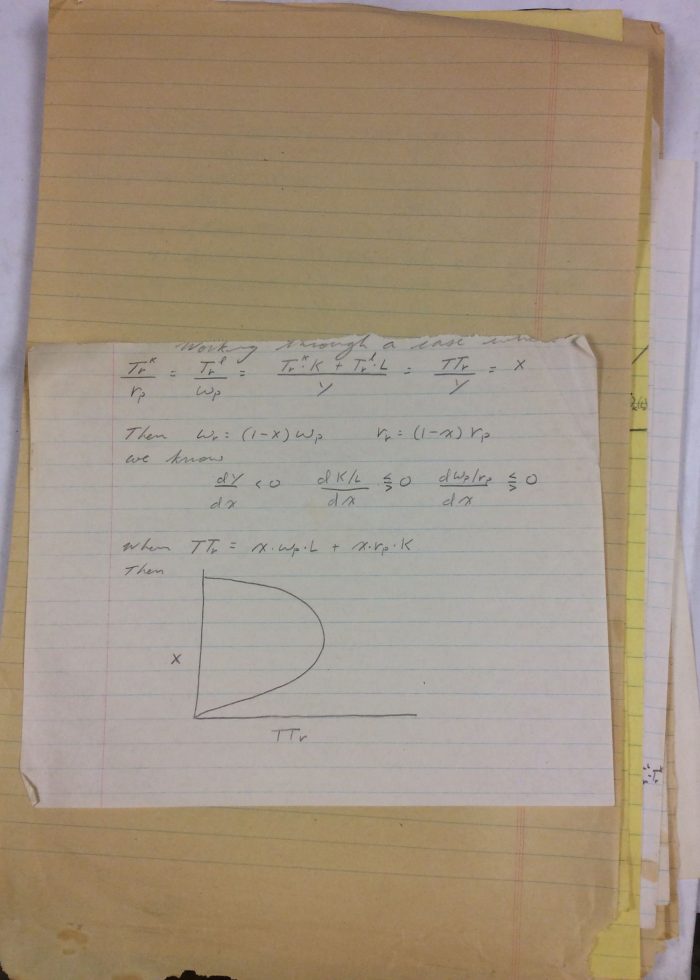 Working through a case when
Tr^k/rp = Tr^l/wp = (Tr^k·K + Tr^l·L)/Y = TTr/Y = x
Then wr = (1-x)wp rr = (1-x)rp
we know
dY/dx < 0 d K/L/dx ⋚ 0 d wp/rp/dx ⋚ 0
when TTr = x·wp·L + x·rp·K
Then
x
TTr